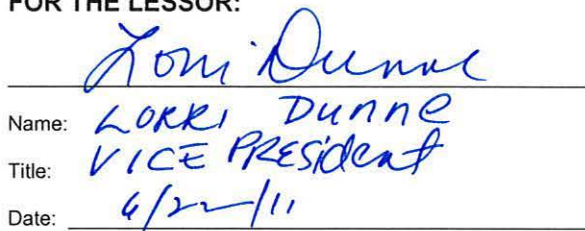 FOR THE LESSOR:
Lorri Dunne
Name: LORRI DUNNE
Title: VICE PRESident
Date: 6/22/11